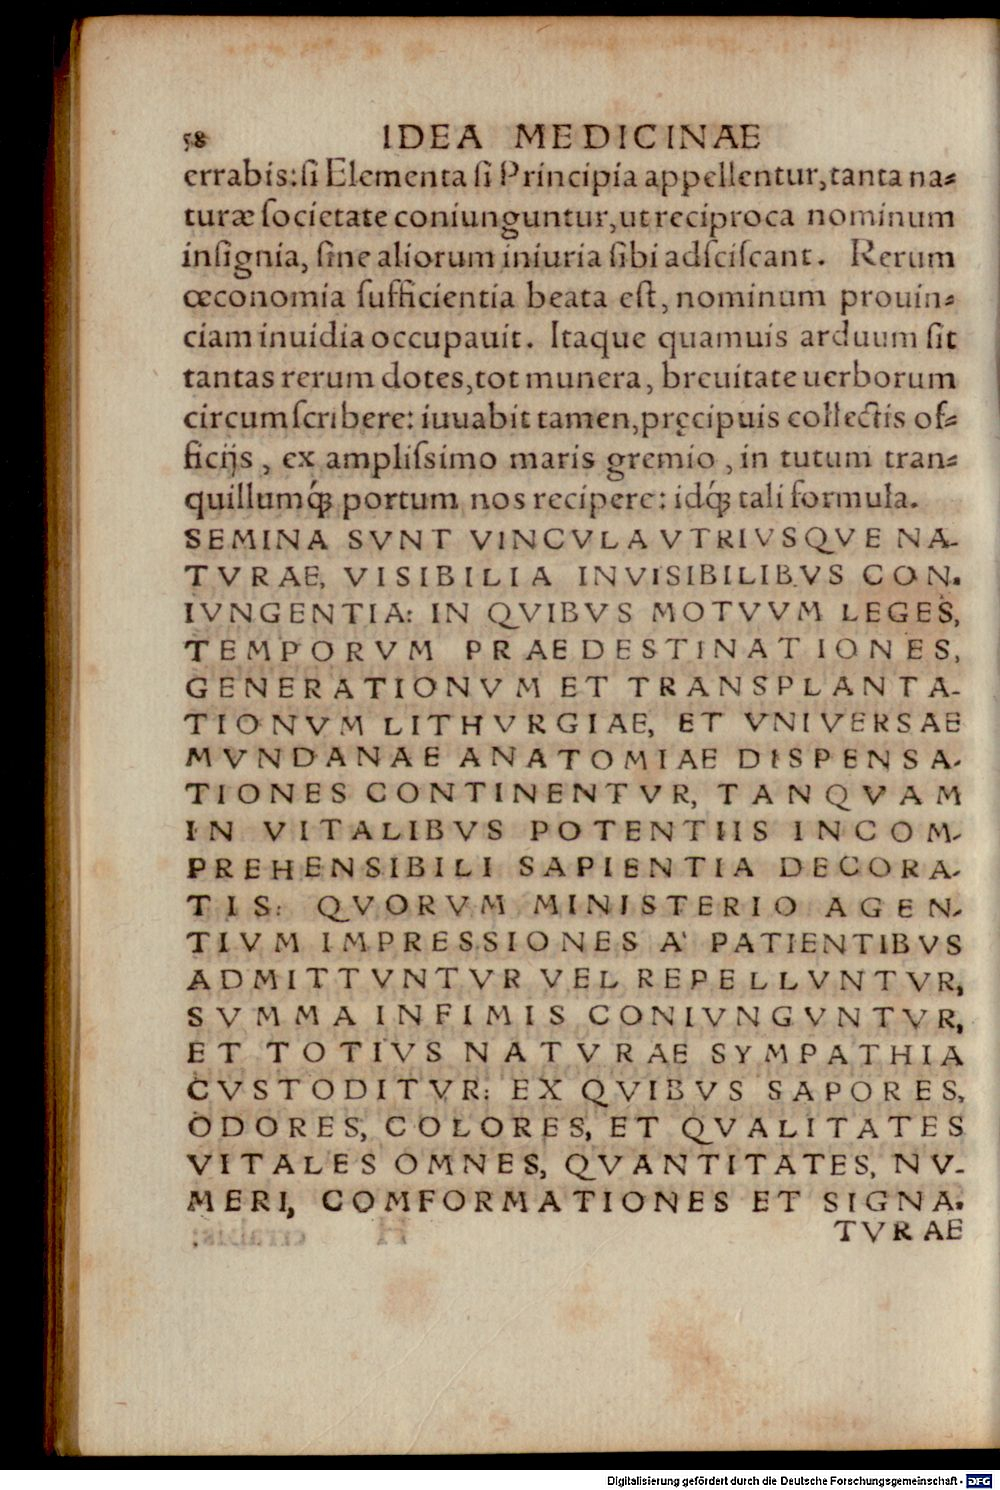 58 IDEA MEDICINAE
errabis: ſi Elementa ſi Principia appellentur, tanta na⸗
turæ ſocietate coniunguntur, ut reciproca nominum
inſignia, ſine aliorum iniuria ſibi adſciſcant. Rerum
œconomia ſufficientia beata eſt, nominum prouin⸗
ciam inuidia occupauit. Itaque quamuis arduum ſit
tantas rerum dotes, tot munera, breuitate uerborum
circumſcribere: iuuabit tamen, pręcipuis collectis of⸗
ficijs, ex ampliſsimo maris gremio, in tutum tran⸗
quillumq́; portum nos recipere: idq́; tali formula.
SEMINA SVNT VINCVLA VTRIVSQVE NA-
TVRAE, VISIBILIA INVISIBILIBVS CON-
IVNGENTIA: IN QVIBVS MOTVVM LEGES,
TEMPORVM PRAEDESTINATIONES,
GENERATIONVM ET TRANSPLANTA-
TIONVM LITHVRGIAE, ET VNIVERSAE
MVNDANAE ANATOMIAE DISPENSA-
TIONES CONTINENTVR, TANQVAM
IN VITALIBVS POTENTIIS INCOM-
PREHENSIBILI SAPIENTIA DECORA-
TIS: QVORVM MINISTERIO AGEN-
TIVM IMPRESSIONES A' PATIENTIBVS
ADMITTVNTVR VEL REPELLVNTVR,
SVMMA INFIMIS CONIVNGVNTVR,
ET TOTIVS NATVRAE SYMPATHIA
CVSTODITVR: EX QVIBVS SAPORES,
ODORES, COLORES, ET QVALITATES
VITALES OMNES, QVANTITATES, NV-
MERI, COMFORMATIONES ET SIGNA-
TVRAE
Digitalisierung gefördert durch die Deutsche Forschungsgemeinschaft - DFG